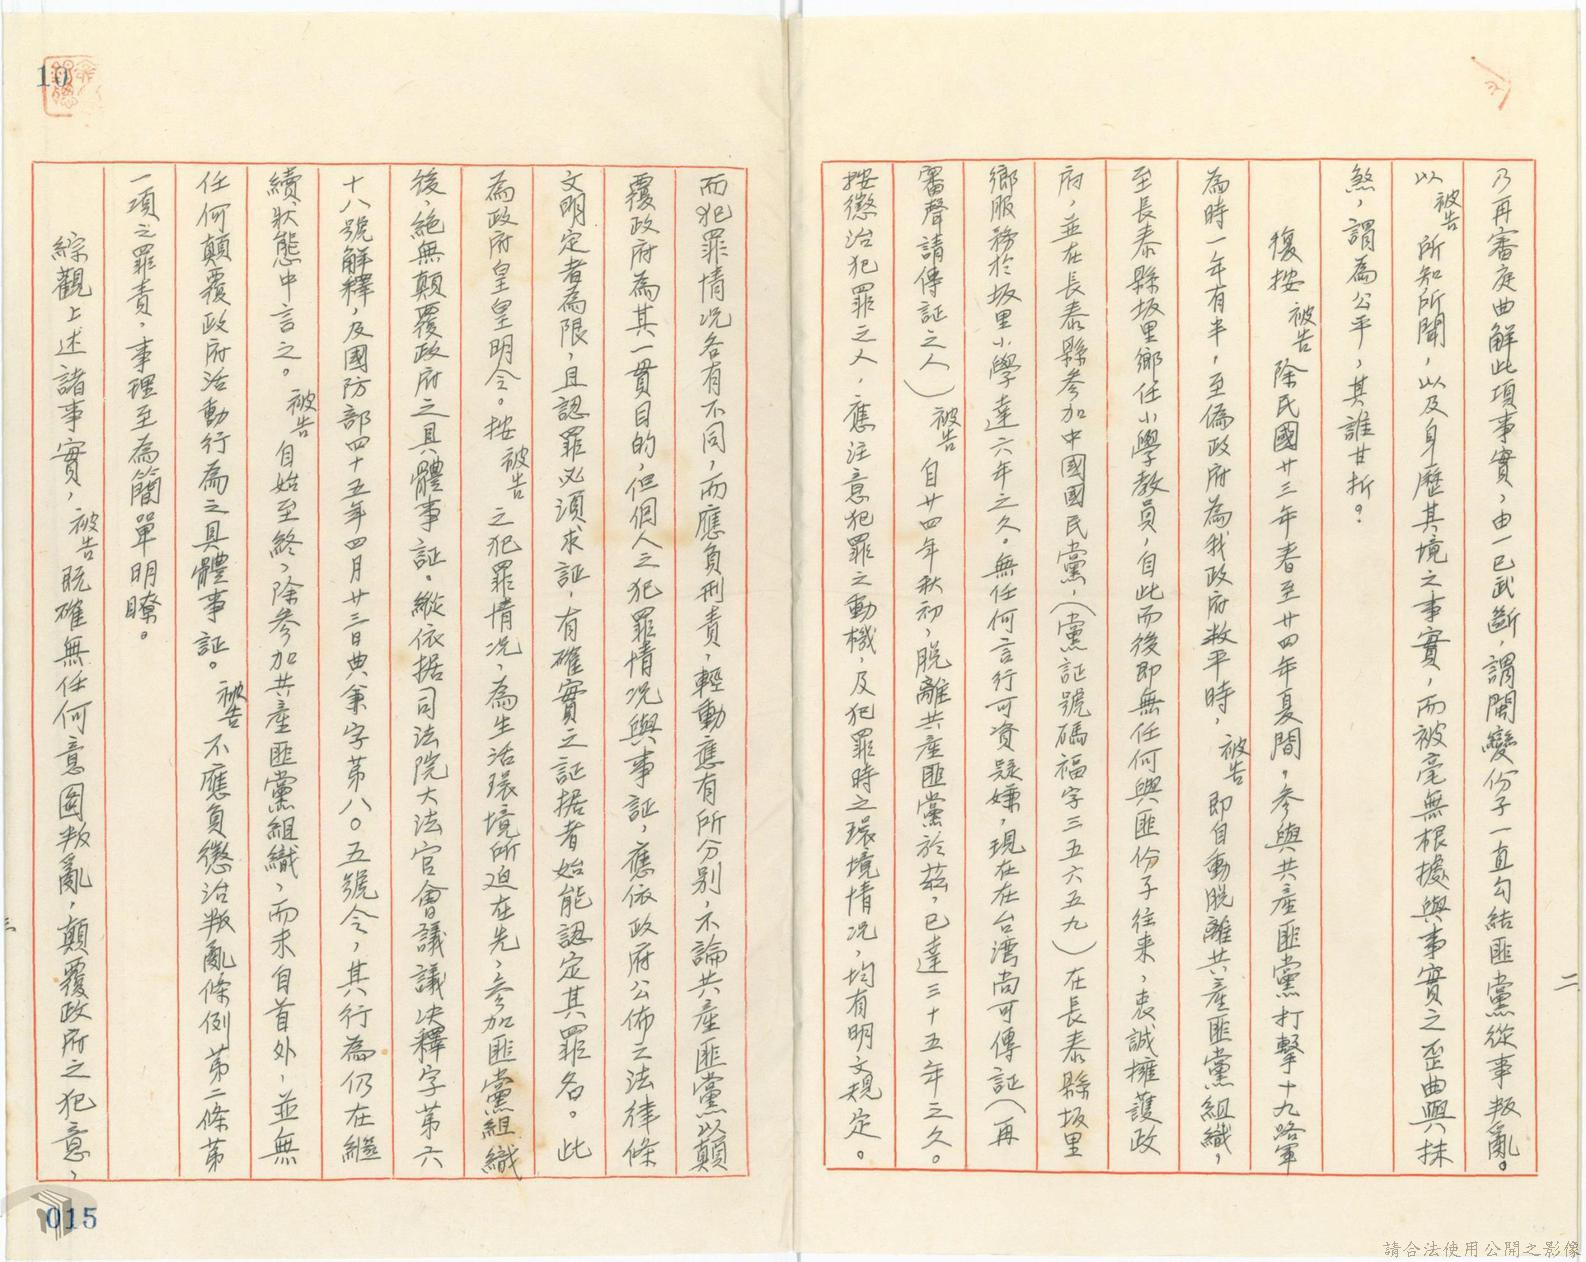 乃再審庭曲解此項事實，由一己武斷，謂閩變份子一直勾結匪黨從事叛亂。
以被告所知所聞，以及身歷其境之事實，而被毫無根據與事實之歪曲與抹
煞，謂為公平，其誰甘折。
復按被告除民國廿三年春至廿四年夏間，參與共產匪黨打擊十九路軍
為時一年有半，至偽政府為我政府救平時，被告即自動脫離共產匪黨組織，
至長泰縣坂里鄉任小學教員，自此而後即無任何與匪份子往來，衷誠擁護政
府，並在長泰縣參加中國國民黨，（黨証號碼福字三五六五九）在長泰縣坂里
鄉服務於坂里小學達六年之久。無任何言行可資疑嫌，現在在台灣尚可傳証（再
審聲請傳証之人）被告自廿四年秋初，脫離共產匪黨於茲，已達三十五年之久。
按懲治犯罪之人，應注意犯罪之動機，及犯罪時之環境情况，均有明文規定。
二
而犯罪情况各有不同，而應負刑責，輕動應有所分别，不論共產匪黨以顛
覆政府為其一貫目的，但個人之犯罪情况與事証，應依政府公佈之法律條
文明定者為限，且認罪必須求証，有確實之証据者始能認定其罪名。此
為政府皇皇明令。按被告之犯罪情况，為生活環境所迫在先，參加匪黨組織
後，絕無顛覆政府之具體事証。縱依据司法院大法官會議議决釋字第六
十八號解釋，及國防部四十五年四月廿三日典彙字第八〇五號令，其行為仍在繼
續狀態中言之。被告自始至終，除參加共產匪黨組織，而未自首外，並無
任何顛覆政府活動行為之具體事証。被告不應負懲治叛亂條例第二條第
一項之罪責，事理至為簡單明瞭。
綜觀上述諸事實，被告既確無任何意圖叛亂，顛覆政府之犯意，
三
10
015
請合法使用公開之影像